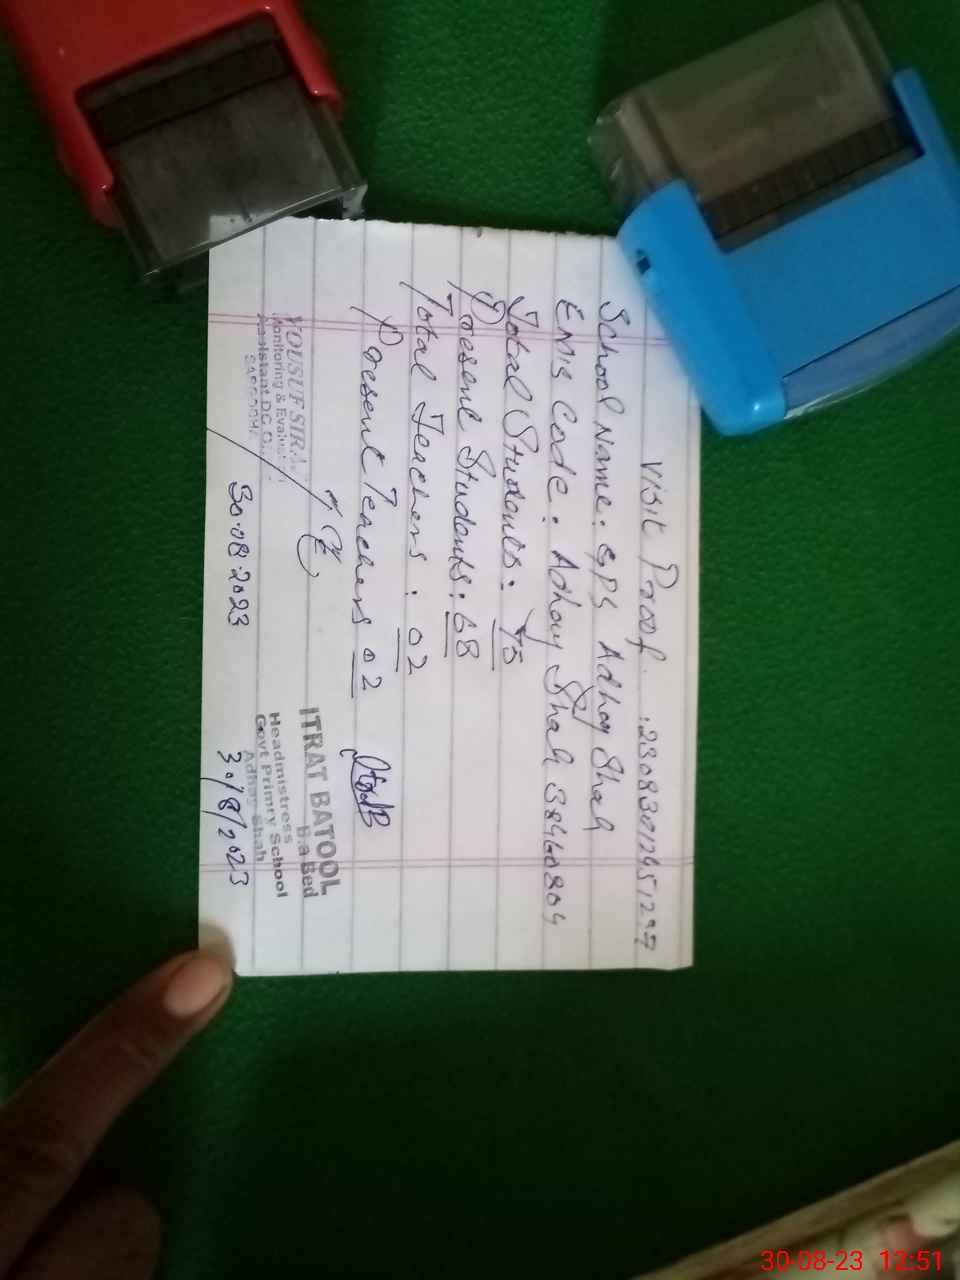 Visit Proof :23083012451297
School Name: GPS Adhoy Shah
EMIS Code: Adhoy Shah 38460804
Total Students: 75
Present Students: 68
Total Teachers: 02
Present Teachers 02
YOUSUF SIRA
Monitoring & Evaluat
Assistant DC O
30.08.2023
ITRAT BATOOL
B.a Bed
Headmistress
Govt Primry School
Adhoy Shah
30/8/2023
30-08-23 12:51